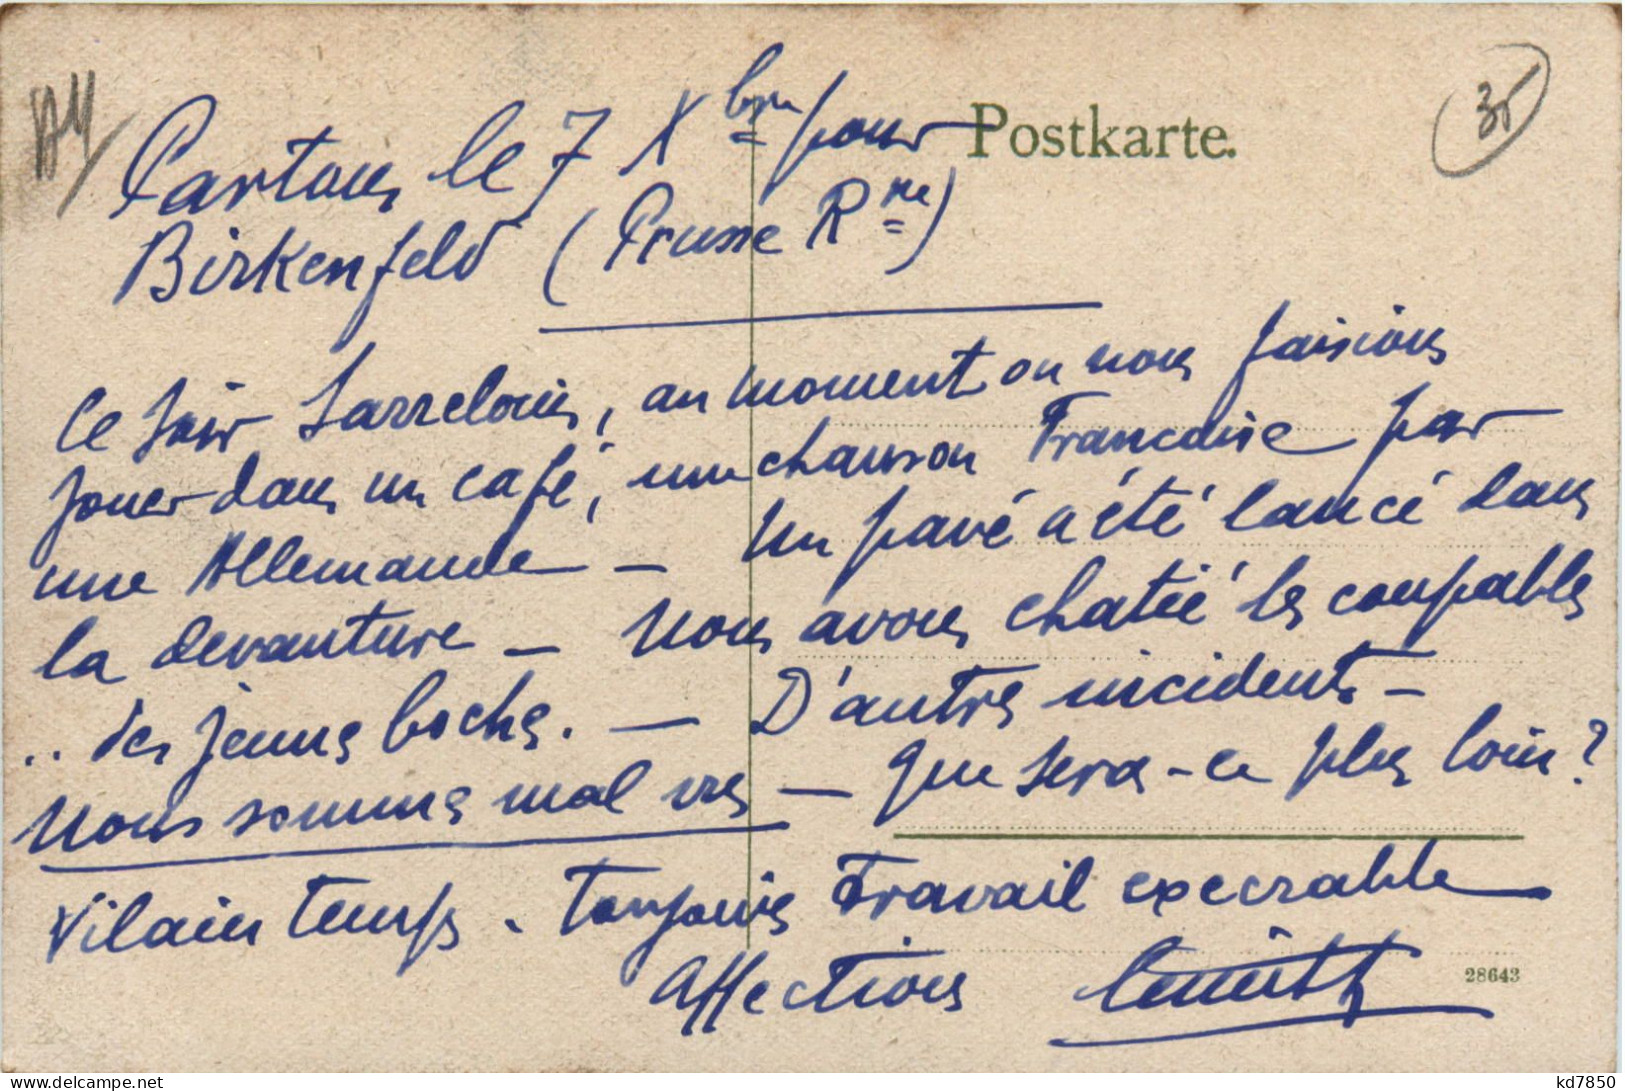 Postkarte.
35
Partons le 7 Xbre pour
Birkenfeld (Prusse Rne)
Ce soir Sarrelouis, au moment ou nous faisions
jouer dans un café, une chanson Francaise par
une Allemande - Un pavé a été lancé dans
la devanture - Nous avons chatié les coupables
.. des jeunes boches. - D'autres incidents -
Nous sommes mal vus - Que sera-ce plus loin?
Vilain temps. Toujours Travail execrable
Affections
28643
kd7850